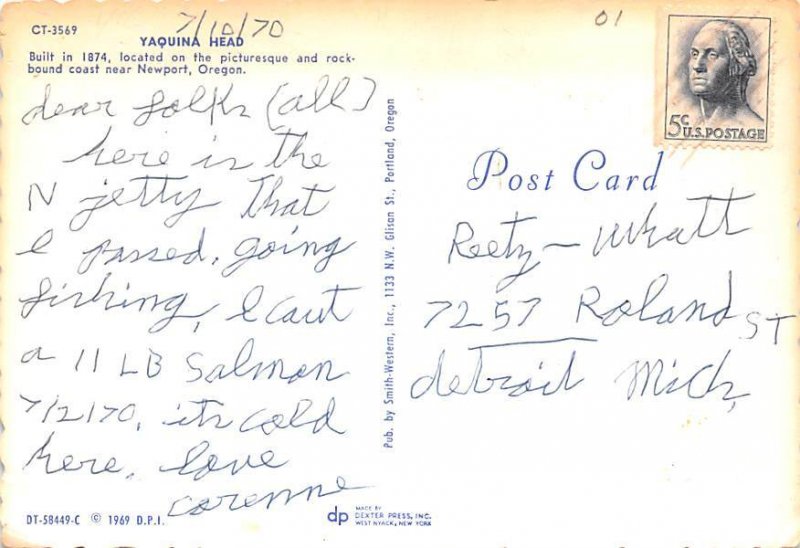 CT-3569
7/10/70
01
YAQUINA HEAD
Built in 1874, located on the picturesque and rock-
bound coast near Newport, Oregon.
dear folks (all)
here is the
N jetty That
I passed, going
fishing, I caut
a 11 LB Salmon
7/2/70, its cold
here, love
corenne
DT-58449-C © 1969 D.P.I.
Pub. by Smith-Western, Inc., 1133 N.W. Glisan St., Portland, Oregon
dp MADE BY
DEXTER PRESS, INC.
WEST NYACK, NEW YORK
5c
U.S. POSTAGE
Post Card
Reetz-Whatt
7257 Roland ST
detroit Mich,